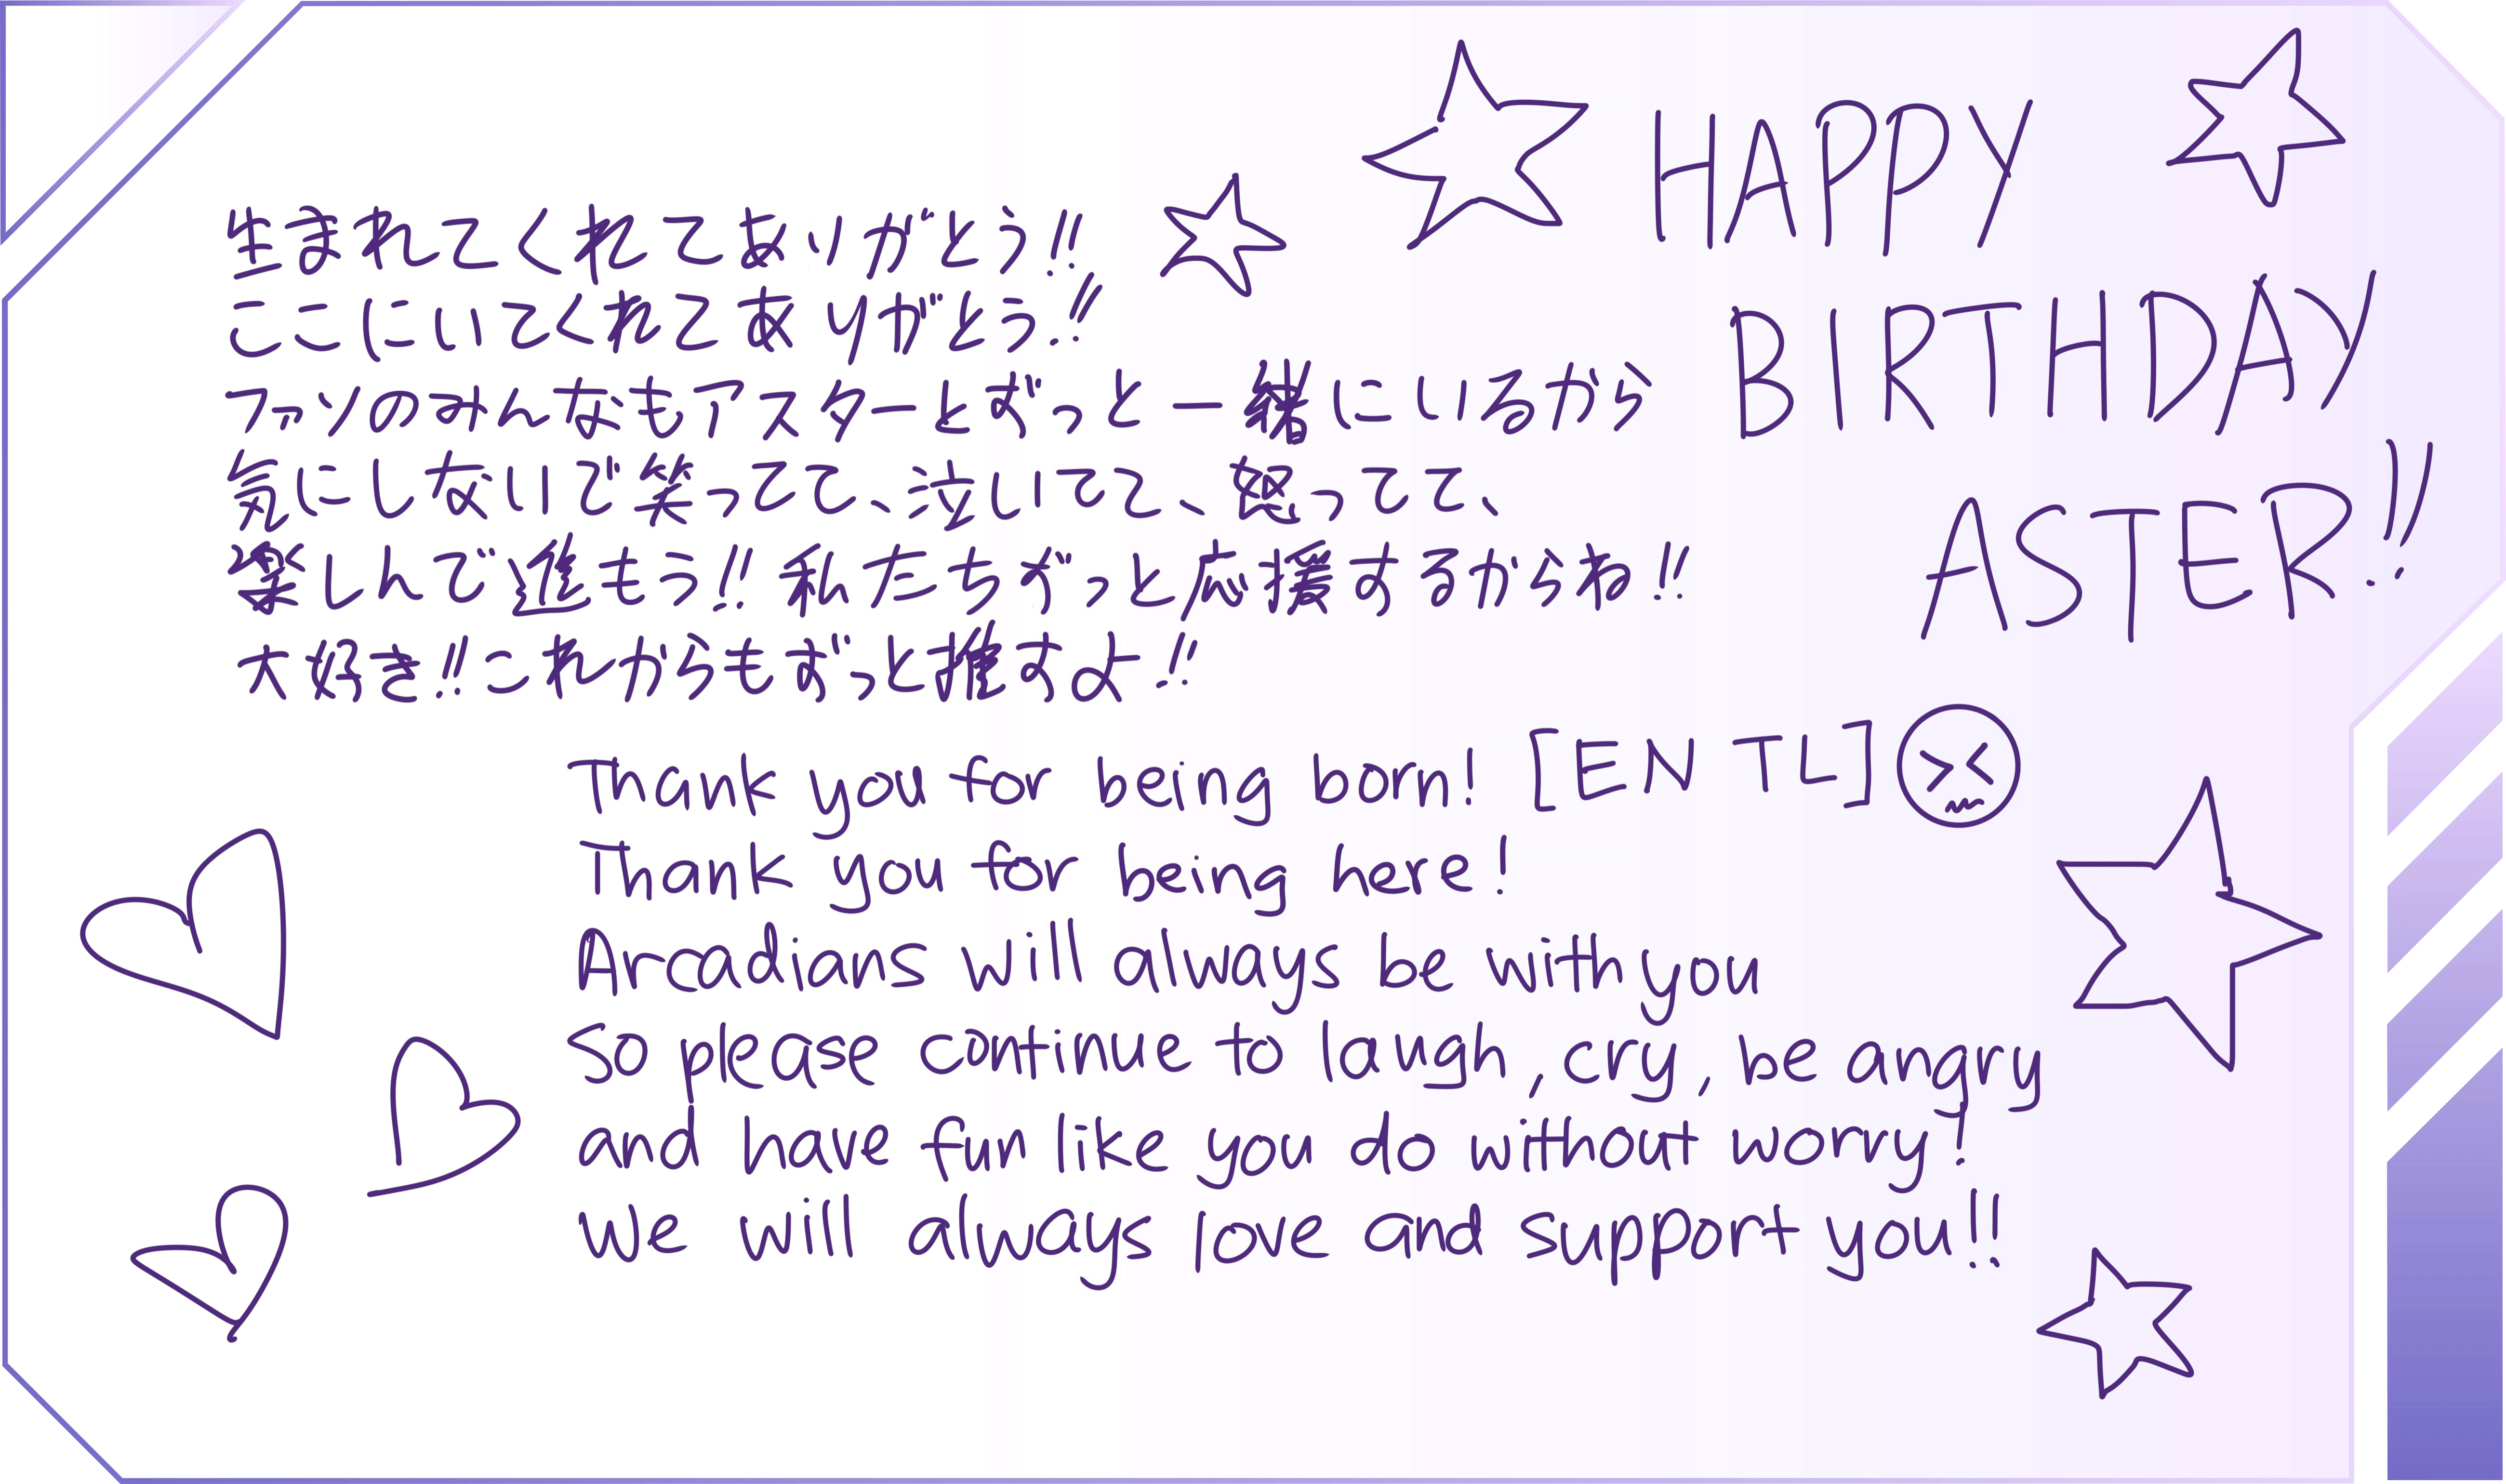 生まれてくれてありがとう!!
ここにいてくれてありがとう!!
ファンのみんなもアスターとずっと一緒にいるから
気にしないで笑ってて、泣いてて、怒ってて、
楽しんで進もう!! 私たちずっと応援するからね!!
大好き!! これからもずっと推すよ!!
HAPPY
BIRTHDAY
ASTER!!
Thank you for being born! [EN TL]
Thank you for being here!
Arcadians will always be with you
So please continue to laugh, cry, be angry
and have fun like you do without worry!
We will always love and support you!!